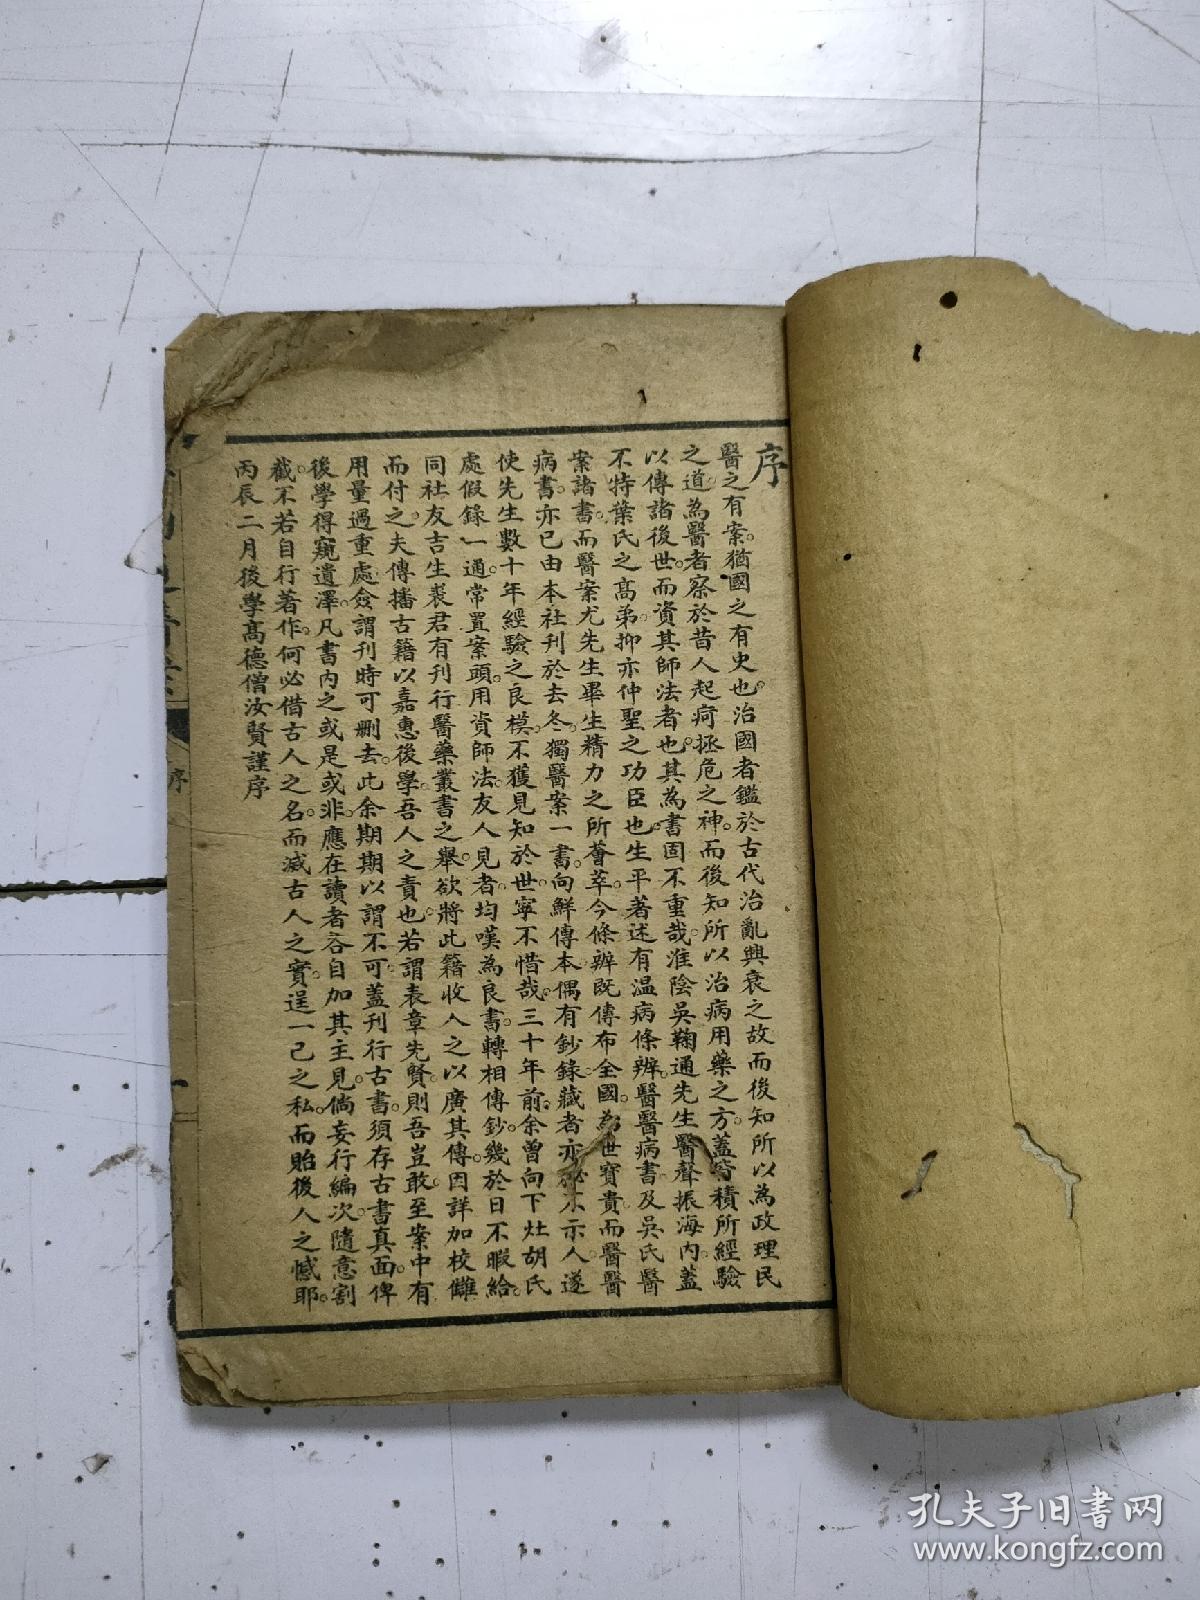 序
醫之有案。猶國之有史也。治國者鑑於古代治亂興衰之故而後知所以為政理民
之道為醫者察於昔人起疴拯危之神。而後知所以治病用藥之方。蓋積所經驗
以傳諸後世。而資其師法者也。其為書固不重哉。淮陰吳鞠通先生醫聲振海內。蓋
不特葉氏之高弟。抑亦仲聖之功臣也。生平著述有温病條辨。醫醫病書。及吳氏醫
案諸書。而醫案尤先生畢生精力之所薈萃。今條辨既傳布全國。為世寶貴。而醫醫
病書。亦已由本社刊於去冬。獨醫案一書。向鮮傳本。偶有鈔錄藏者亦祕不示人。遂
使先生數十年經驗之良模。不獲見知於世。寧不惜哉。三十年前。余曾向下灶胡氏
處假錄一通。常置案頭。用資師法。友人見者。均嘆為良書。轉相傳鈔。幾於日不暇給。
同社友吉生裘君有刊行醫藥叢書之舉。欲將此籍收入之以廣其傳。因詳加校讎
而付之。夫傳播古籍以嘉惠後學。吾人之責也。若謂表章先賢。則吾豈敢。至案中有
用量過重處。僉謂刊時可刪去。此余期期以謂不可。蓋刊行古書。須存古書真面。俾
後學得窺遺澤。凡書內之或是或非。應在讀者各自加其主見。倘妄行編次。隨意割
截。不若自行著作。何必借古人之名。而滅古人之實。逞一己之私。而貽後人之憾耶。
丙辰二月後學高德僧汝賢謹序
序
一
孔夫子旧书网
www.kongfz.com